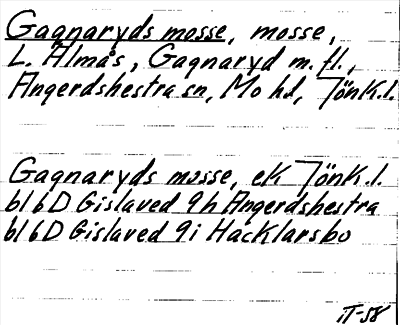 Gagnaryds mosse, mosse,
L. Almås, Gagnaryd m. fl.,
Angerdshestra sn, Mo hd, Jönk.l.
Gagnaryds mosse, ek Jönk.l.
bl 6D Gislaved 9h Angerdshestra
bl 6D Gislaved 9i Hacklarsbo
IT-58